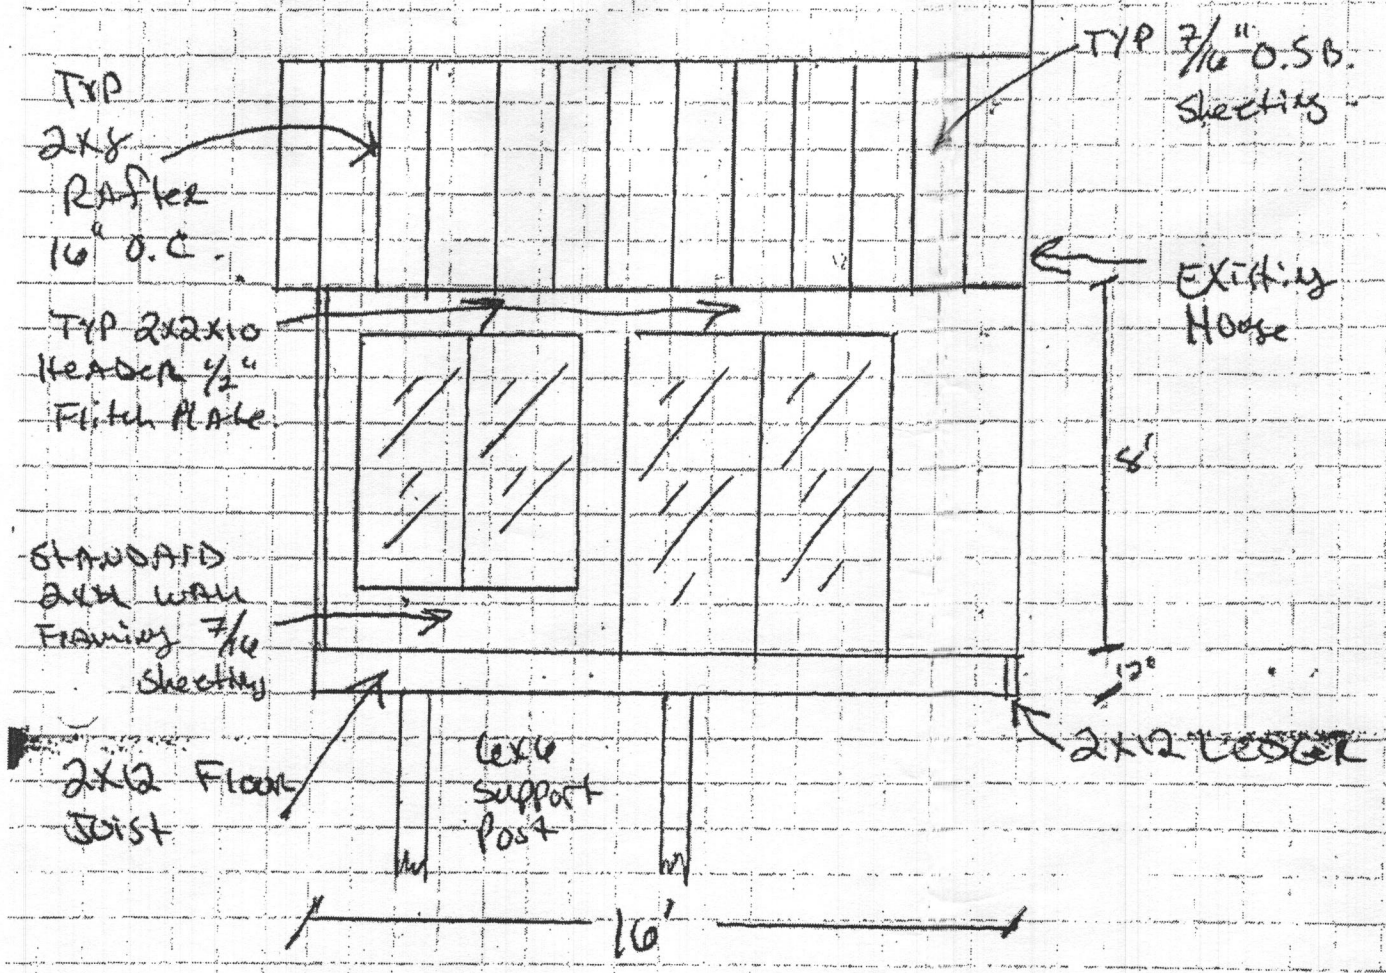 TYP
2X8
RAfter
16" O.C.
TYP 7/16" O.S.B.
Sheeting
Existing
House
TYP 2x2x10
HeADeR 1/2"
Flitch PlAte
8'
STANDARD
2x4 WALL
Framing 7/16
Sheeting
12"
2X12 LEDGER
2X12 Floor
Joist
6x6
Support
Post
16'